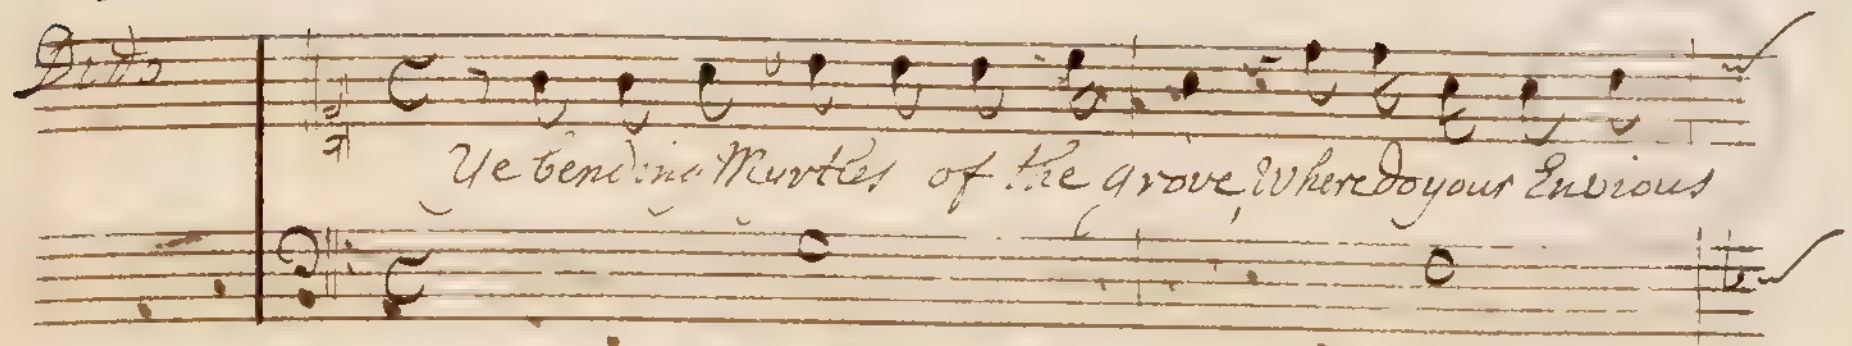 Dido
Ye bending Murtles of the grove, Where do your Envious